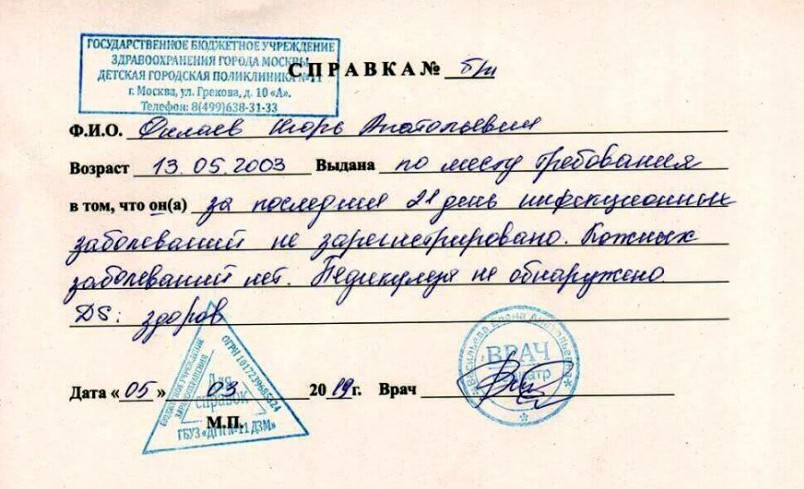 ГОСУДАРСТВЕННОЕ БЮДЖЕТНОЕ УЧРЕЖДЕНИЕ
ЗДРАВООХРАНЕНИЯ ГОРОДА МОСКВЫ
ДЕТСКАЯ ГОРОДСКАЯ ПОЛИКЛИНИКА №11
г. Москва, ул. Грекова, д. 10 «А».
Телефон: 8(499)638-31-33
СПРАВКА № б/н
Ф.И.О. Филаев Игорь Анатольевич
Возраст 13.05.2003 Выдана по месту требования
в том, что он(а) за последний 21 день инфекционных
заболеваний не зарегистрировано. Кожных
заболеваний нет. Педикулеза не обнаружено.
DS: здоров
Дата «05» 03 2019г. Врач
М.П.
БЮДЖЕТНОЕ УЧРЕЖДЕНИЕ
ЗДРАВООХРАНЕНИЯ
Для
справок
ГБУЗ «ДГП №11 ДЗМ»
Васильева Елена Анатольевна
ВРАЧ